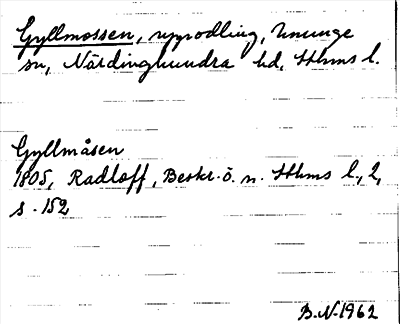 Gyllmossen, uppodling, Ununge
sn, Närdinghundra hd, Sthms l.
Gyllmåsen
1805, Radloff, Beskr. ö. n. Sthms l., 2,
s. 152
B.N. 1962